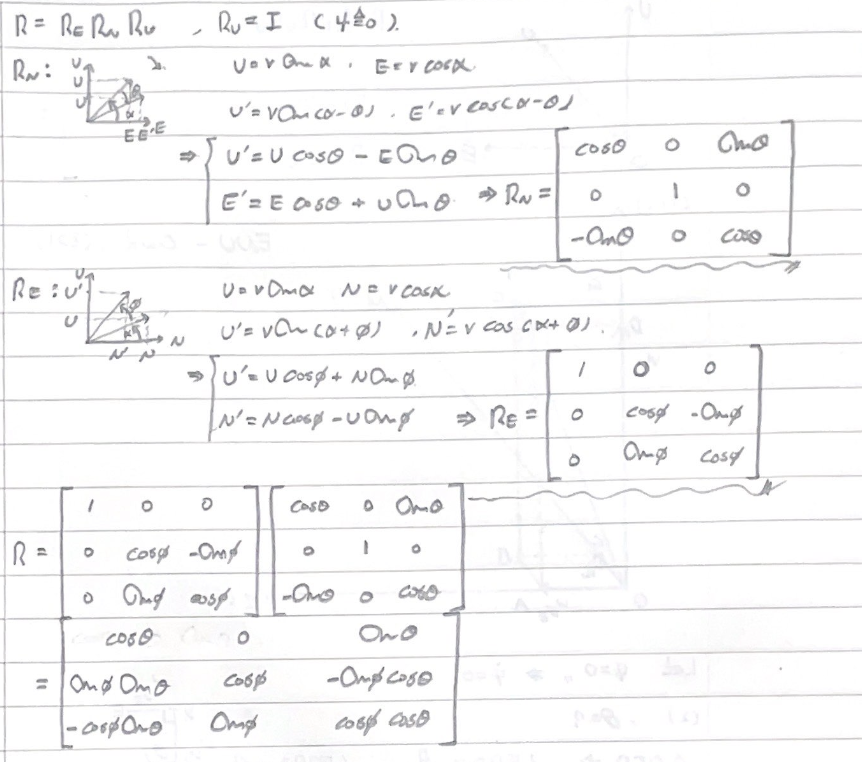 R = R_E R_N R_U , R_U = I (ψ ≜ 0).
R_N: U U U' θ α E E' E U = v sin α . E = v cos α.
U' = v sin (α - θ) . E' = v cos (α - θ)
⇒ { U' = U cos θ - E sin θ
E' = E cos θ + U sin θ ⇒ R_N = [ cos θ 0 sin θ
0 1 0
-sin θ 0 cos θ ]
R_E: U U' U φ α N' N N U = v sin α N = v cos α.
U' = v sin (α + φ) , N' = v cos (α + φ).
⇒ { U' = U cos φ + N sin φ
N' = N cos φ - U sin φ ⇒ R_E = [ 1 0 0
0 cos φ -sin φ
0 sin φ cos φ ]
R = [ 1 0 0
0 cos φ -sin φ
0 sin φ cos φ ] [ cos θ 0 sin θ
0 1 0
-sin θ 0 cos θ ]
= [ cos θ 0 sin θ
sin φ sin θ cos φ -sin φ cos θ
-cos φ sin θ sin φ cos φ cos θ ]